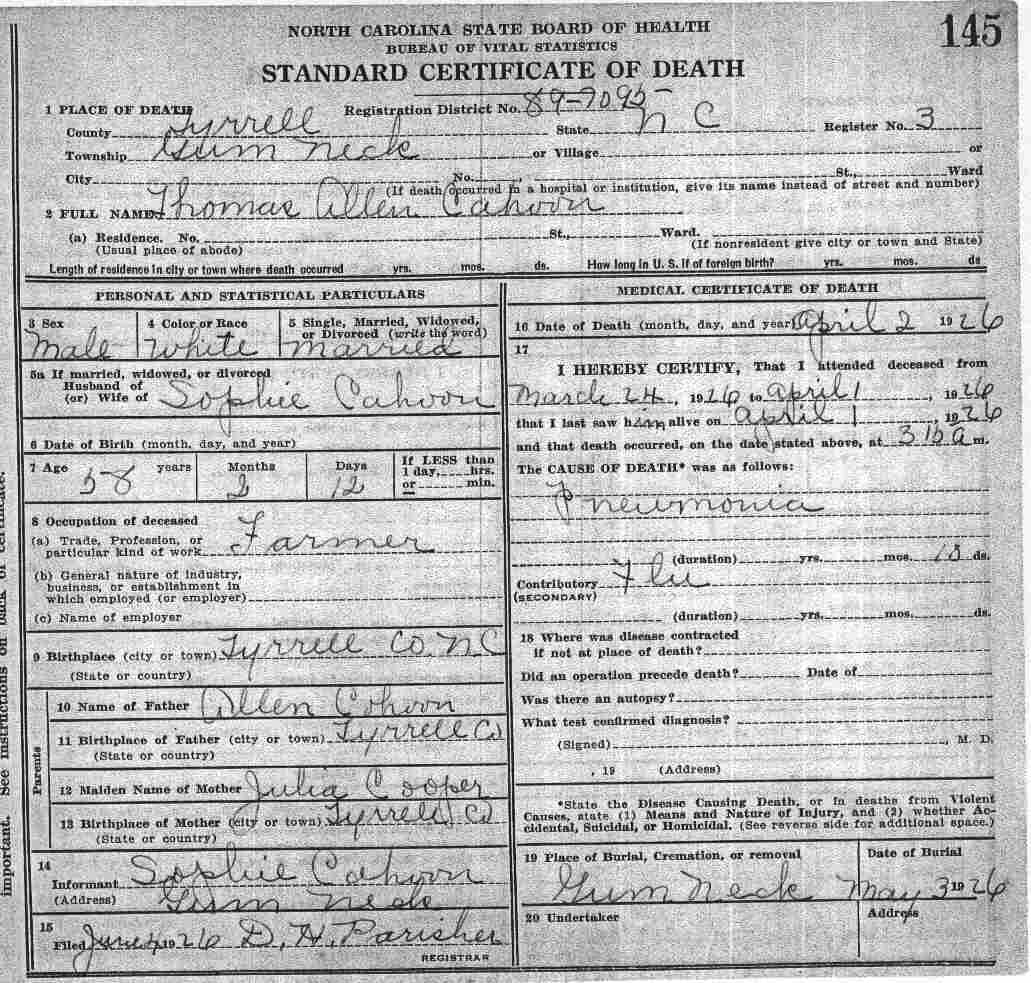 145
NORTH CAROLINA STATE BOARD OF HEALTH
BUREAU OF VITAL STATISTICS
STANDARD CERTIFICATE OF DEATH
1 PLACE OF DEATH Registration District No. 89-7095
County Tyrrell State N C Register No. 3
Township Gum Neck or Village or
City No. , St., Ward
(If death occurred in a hospital or institution, give its name instead of street and number)
2 FULL NAME Thomas Allen Cahoon
(a) Residence. No. St., Ward.
(Usual place of abode) (If nonresident give city or town and State)
Length of residence in city or town where death occurred yrs. mos. ds. How long in U. S. if of foreign birth? yrs. mos. ds
PERSONAL AND STATISTICAL PARTICULARS
3 Sex 4 Color or Race 5 Single, Married, Widowed,
or Divorced (write the word)
Male White Married
5a If married, widowed, or divorced
Husband of
(or) Wife of Sophie Cahoon
6 Date of Birth (month, day, and year)
7 Age years Months Days If LESS than
1 day, hrs.
or min.
58 2 12
8 Occupation of deceased
(a) Trade, Profession, or
particular kind of work Farmer
(b) General nature of industry,
business, or establishment in
which employed (or employer)
(c) Name of employer
9 Birthplace (city or town) Tyrrell Co. N.C
(State or country)
Parents
10 Name of Father Allen Cohoon
11 Birthplace of Father (city or town) Tyrrell Co
(State or country)
12 Maiden Name of Mother Julia Cooper
13 Birthplace of Mother (city or town) Tyrrell Co
(State or country)
14
Informant Sophie Cahoon
(Address) Gum Neck
15
Filed June 4 1926 D. H. Parisher
REGISTRAR
MEDICAL CERTIFICATE OF DEATH
16 Date of Death (month, day, and year) April 2 1926
17
I HEREBY CERTIFY, That I attended deceased from
March 24, 1926 to April 1, 1926
that I last saw him alive on April 1, 1926
and that death occurred, on the date stated above, at 3 15 a m.
The CAUSE OF DEATH* was as follows:
Pneumonia
(duration) yrs. mos. 10 ds.
Contributory Flu
(SECONDARY)
(duration) yrs. mos. ds.
18 Where was disease contracted
if not at place of death?
Did an operation precede death? Date of
Was there an autopsy?
What test confirmed diagnosis?
(Signed) , M. D.
, 19 (Address)
*State the Disease Causing Death, or in deaths from Violent
Causes, state (1) Means and Nature of Injury, and (2) whether Ac-
cidental, Suicidal, or Homicidal. (See reverse side for additional space.)
19 Place of Burial, Cremation, or removal Date of Burial
Gum Neck May 3 1926
20 Undertaker Address
important. See instructions on back of certificate.